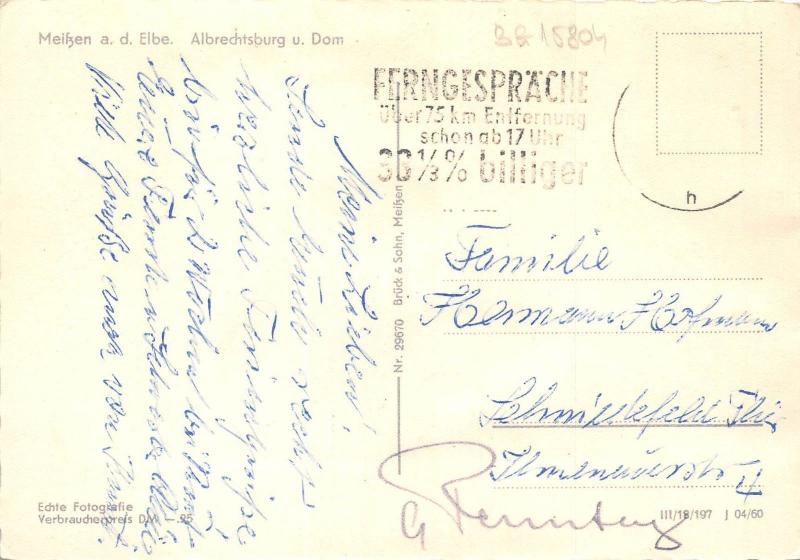 Meißen a. d. Elbe. Albrechtsburg u. Dom
Meine Lieben!
Sende Euch recht
herzliche Feriengrüße
bin für 2 Wochen bei
Eure
Viele Grüße auch von
Echte Fotografie
Verbraucherpreis DM —.25
Nr. 29670 Brück & Sohn, Meißen
FERNGESPRÄCHE
über 75 km Entfernung
schon ab 17 Uhr
33 1/3 % billiger
h
Familie
Hermann Hofmann
Schmiedefeld Thür.
Ilmenauerstr. 4
III/18/197 J 04/60